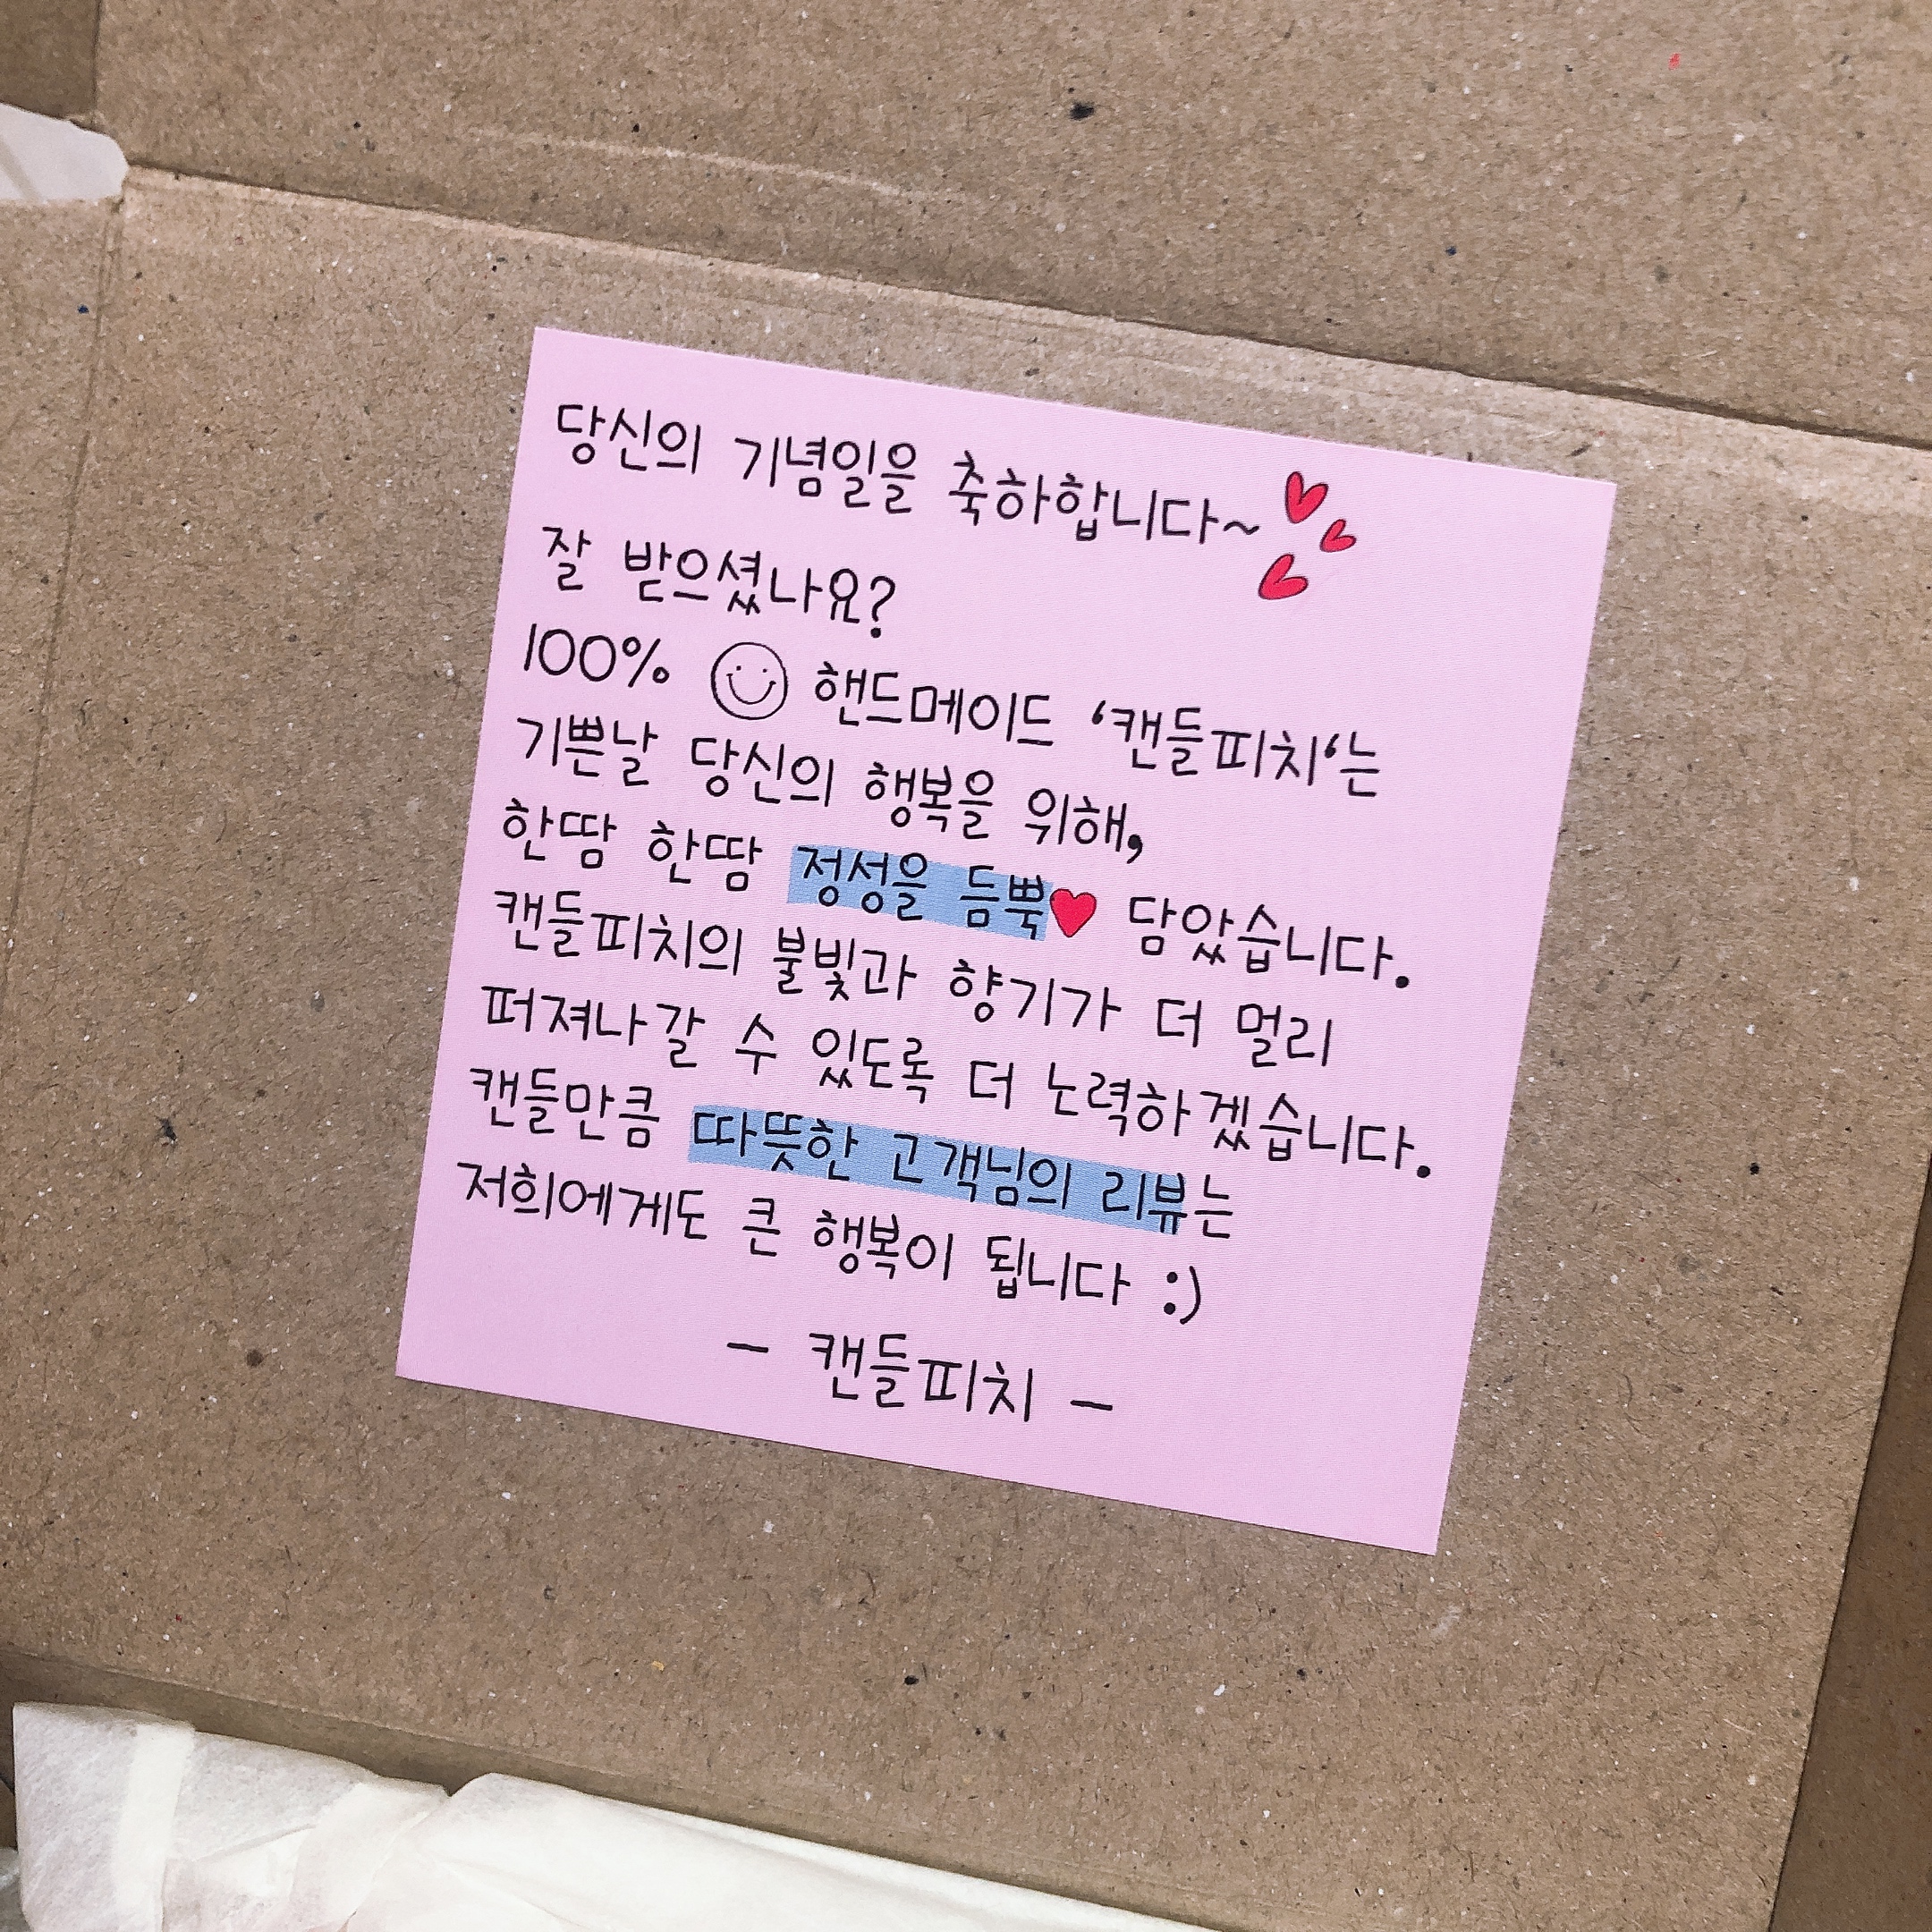 당신의 기념일을 축하합니다~
잘 받으셨나요?
100% 핸드메이드 ‘캔들피치‘는
기쁜날 당신의 행복을 위해,
한땀 한땀 정성을 듬뿍 담았습니다.
캔들피치의 불빛과 향기가 더 멀리
퍼져나갈 수 있도록 더 노력하겠습니다.
캔들만큼 따뜻한 고객님의 리뷰는
저희에게도 큰 행복이 됩니다 :)
- 캔들피치 -